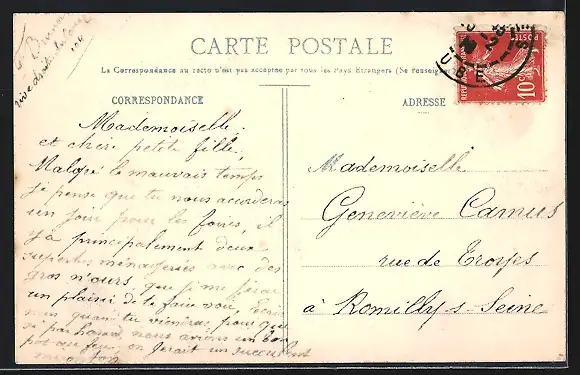 CARTE POSTALE
La Correspondance au recto n'est pas acceptée par tous les Pays Etrangers (Se renseigner
CORRESPONDANCE
ADRESSE
POSTES
10
AUBE
Mademoiselle
et chère petite fille,
Malgré le mauvais temps
je pense que tu nous accorderas
un jour pour les foires, il
y a principalement deux
superbes ménageries avec des
gros n'ours, que je me ferai
un plaisir de te faire voir. Ecris
nous quand tu viendras, pour que
si par hasard, nous avions un bon
pot au feu, on ferait un succulent
miroton
Mademoiselle
Geneviève Camus
rue de Troyes
à Romilly-s-Seine